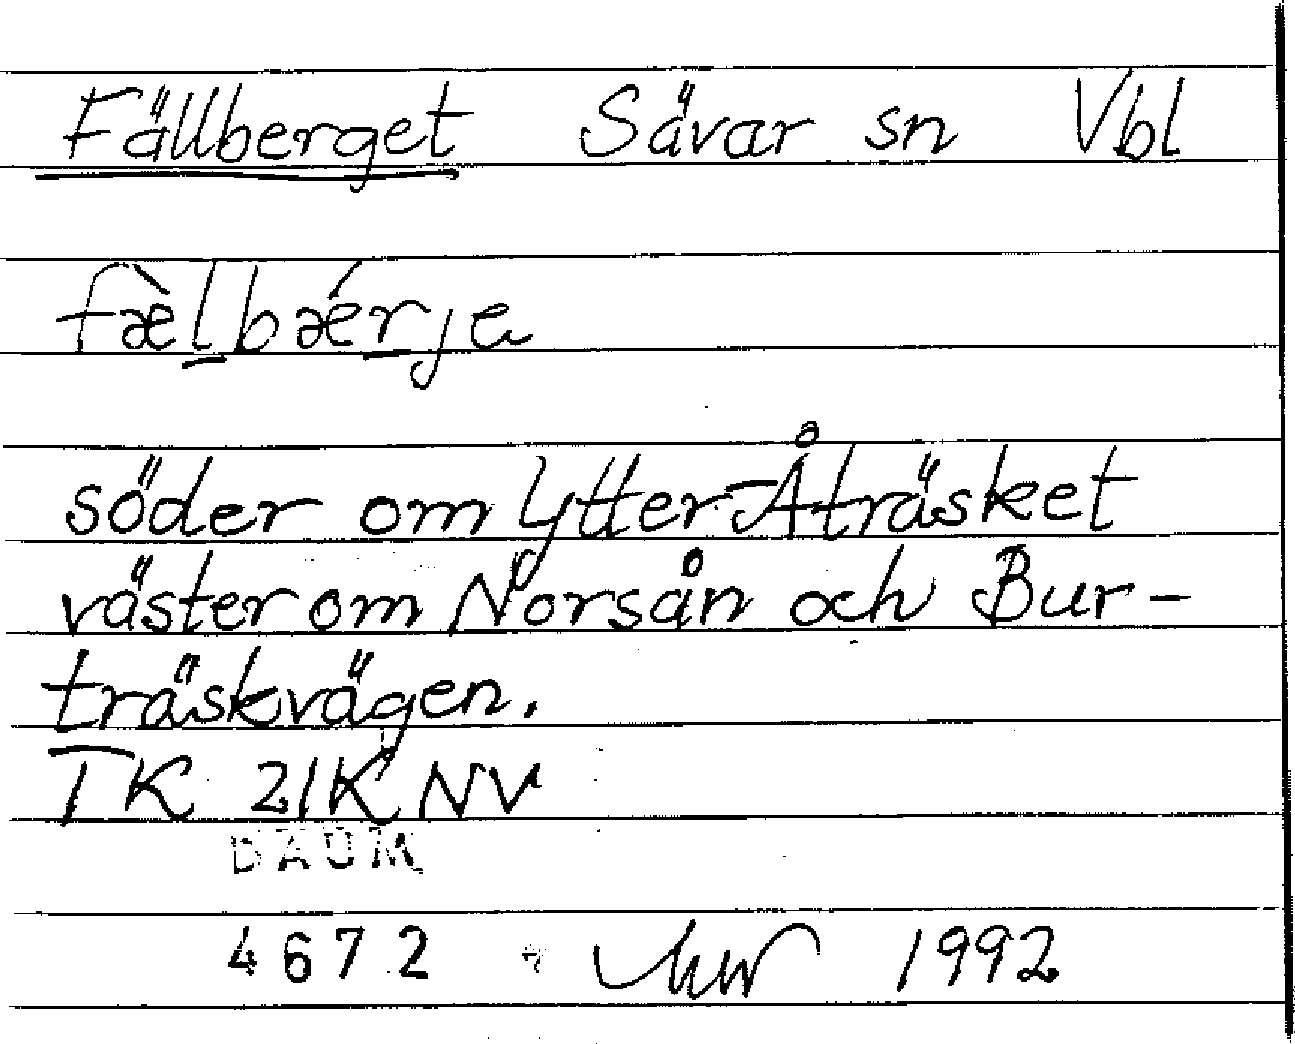 Fällberget Sävar sn Vbl
fæ̀lbǽrje
söder om Ytter-Åträsket
väster om Norsån och Bur-
träskvägen.
TK 21K NV
DAUM
4672 1992